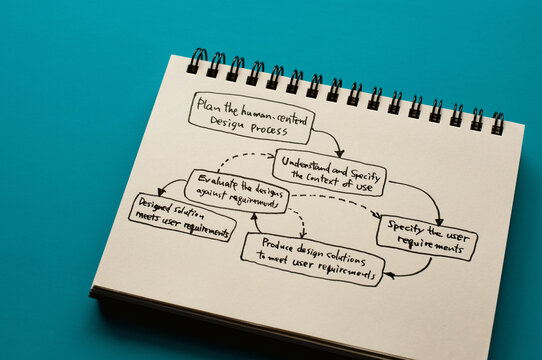 Plan the human-centerd
Design Process
Understand and Specify
the Context of use
Evaluate the designs
against requirements
Designed solution
meets user requirements
Specify the user
requirements
Produce design solutions
to meet user requirements